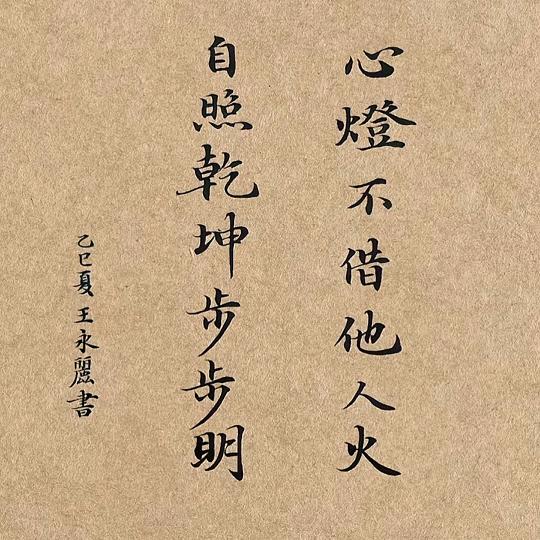 心燈不借他人火
自照乾坤步步明
乙巳夏王永麗書